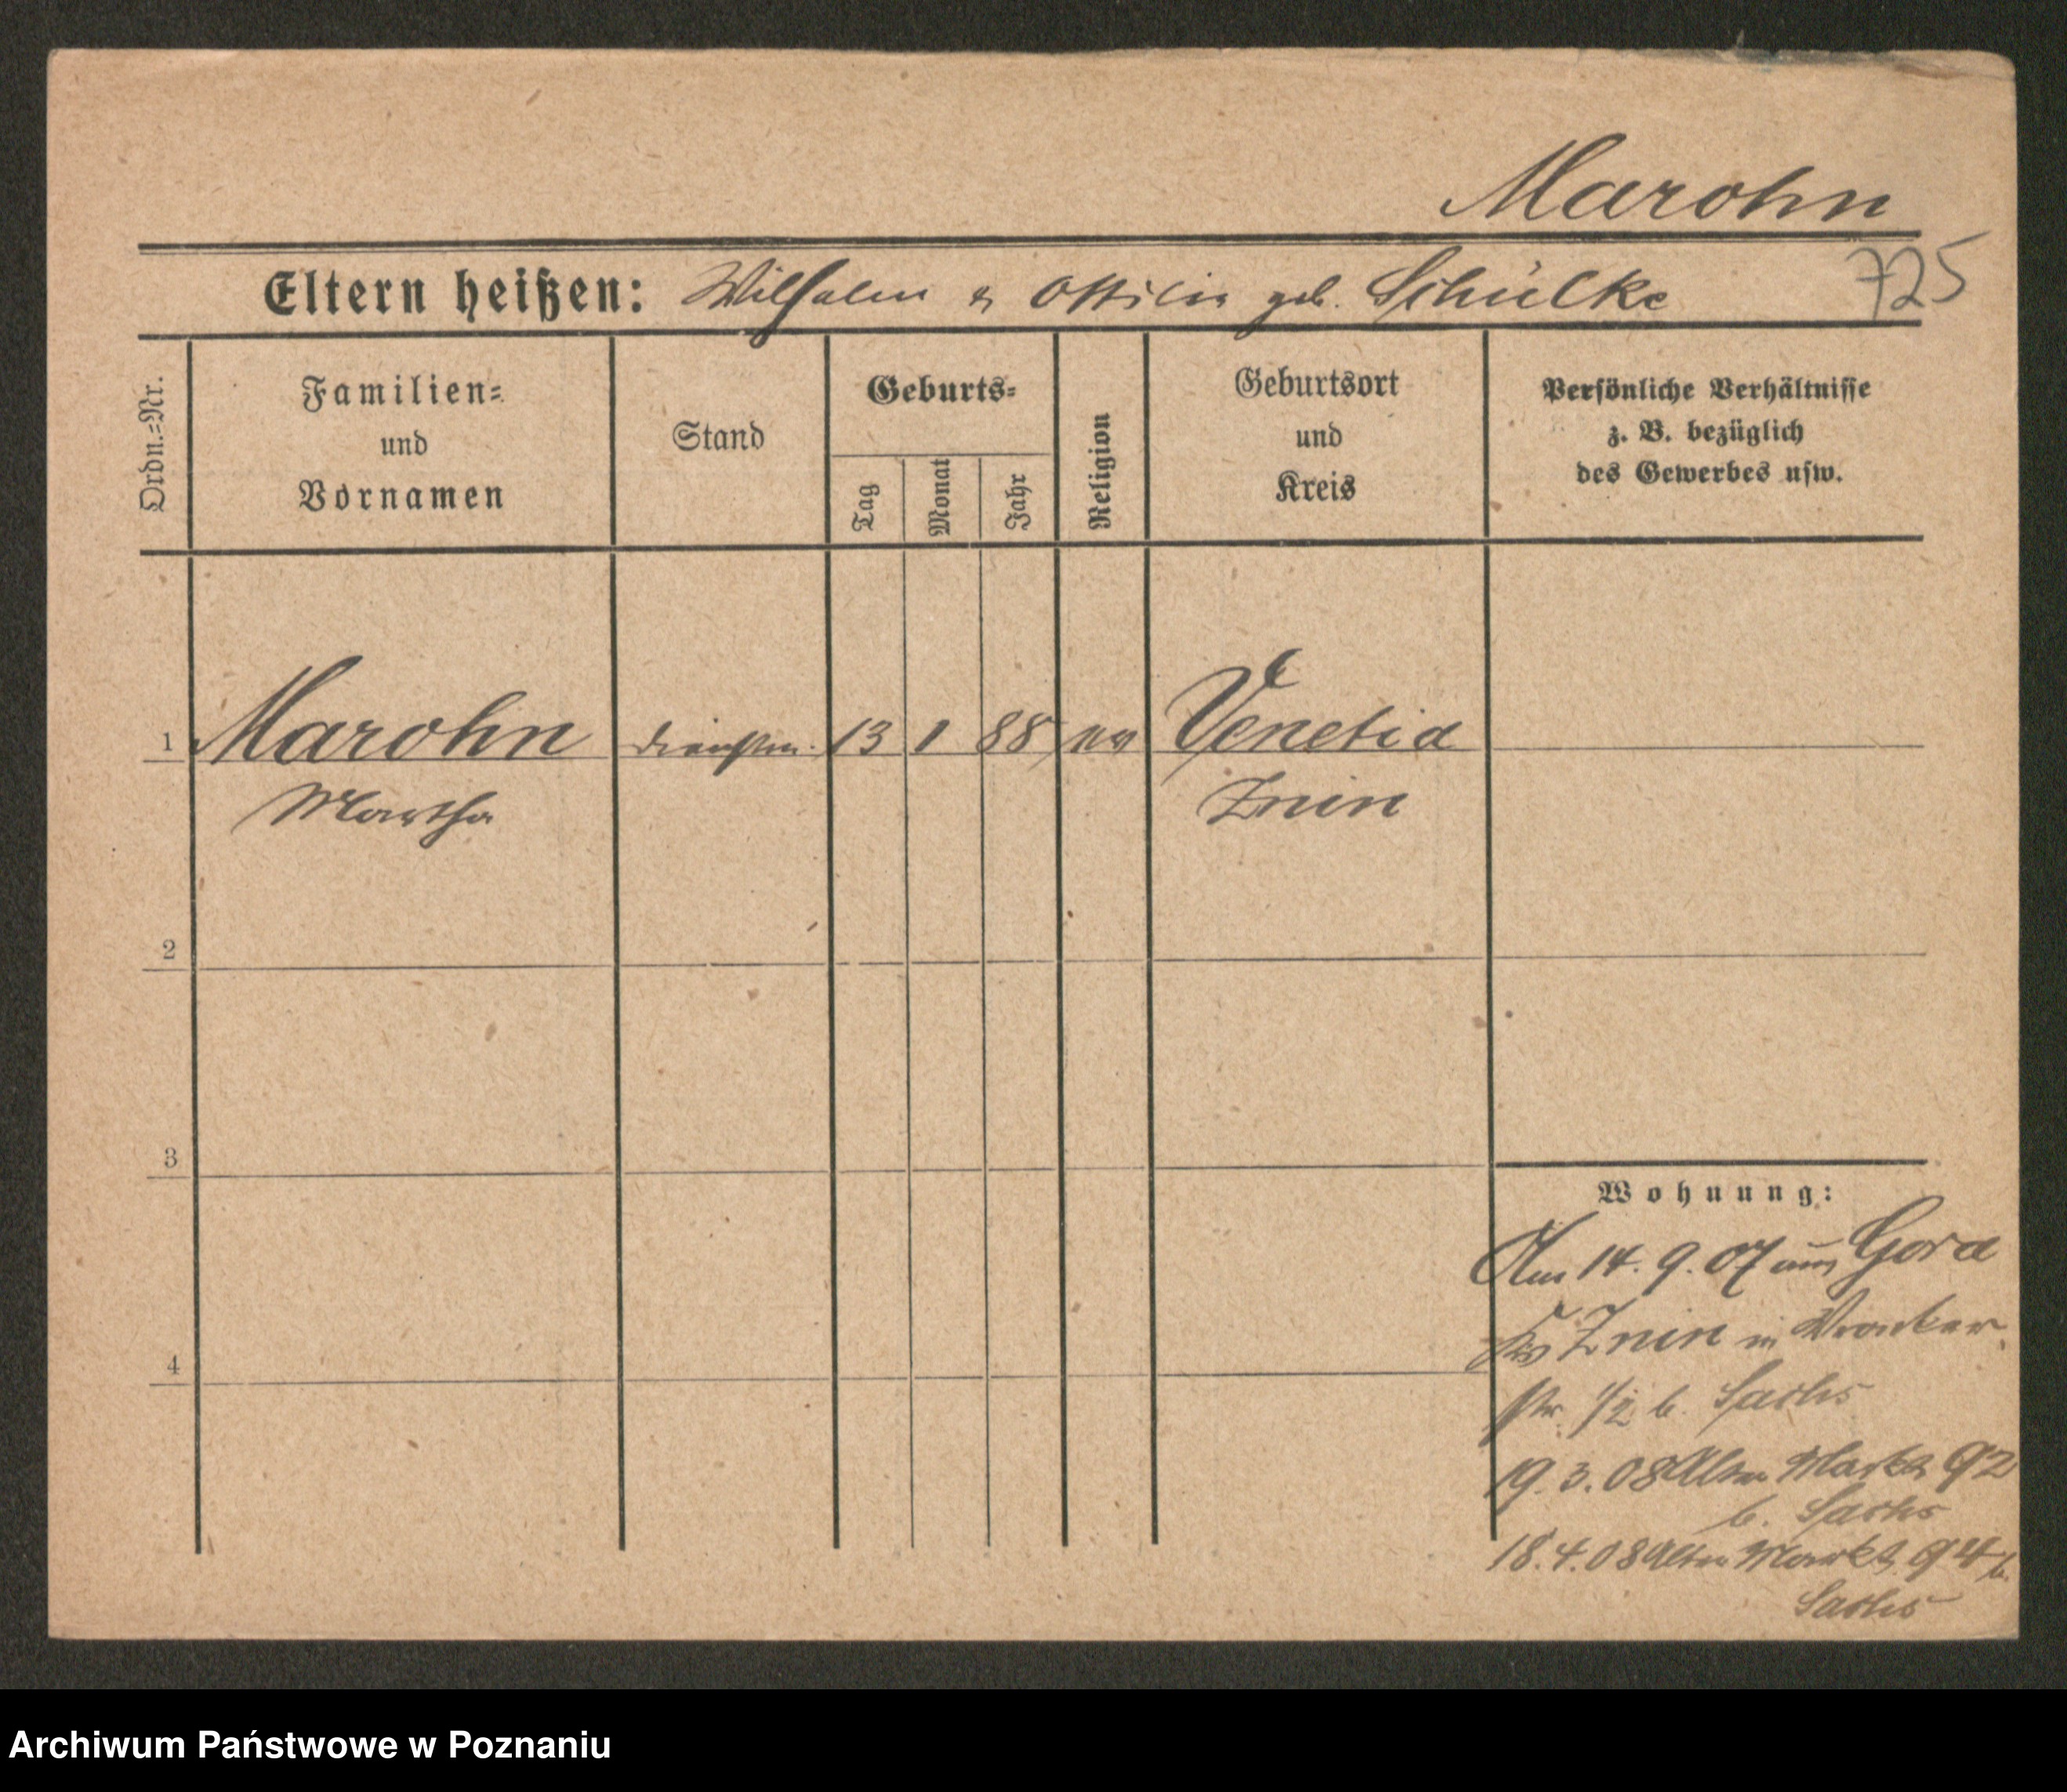 Marohn
725
Eltern heißen: Wilhelm & Ottilie geb. Schülke
Ordn.=Nr.
Familien=
und
Vornamen
Stand
Geburts=
Tag
Monat
Jahr
Religion
Geburtsort
und
Kreis
Persönliche Verhältnisse
z. B. bezüglich
des Gewerbes usw.
1 Marohn Dienstm. 13 1 88 ev Venetia
Martha Znin
2
3
4
Wohnung:
Am 14. 9. 07 aus Gora
Krs Znin in Wronker
str. 1/2 b. Sachs
19. 3. 08 Alter Markt 92
b. Sachs
18. 4. 08 Alter Markt 94 b.
Sachs
Archiwum Państwowe w Poznaniu